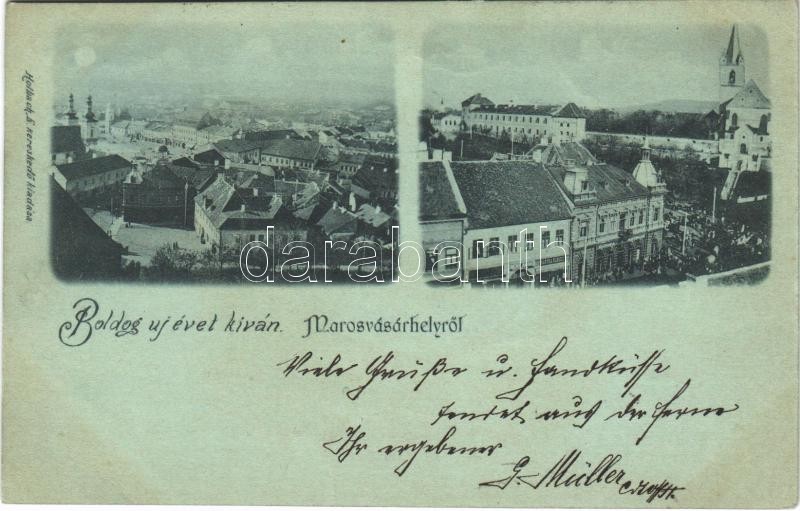 Holbach E. kereskedő kiadása
darabanth
Boldog uj évet kíván. Marosvásárhelyről
Viele Grüße u. Handküsse
sendet aus der Ferne
Ihr ergebener
G. Müller